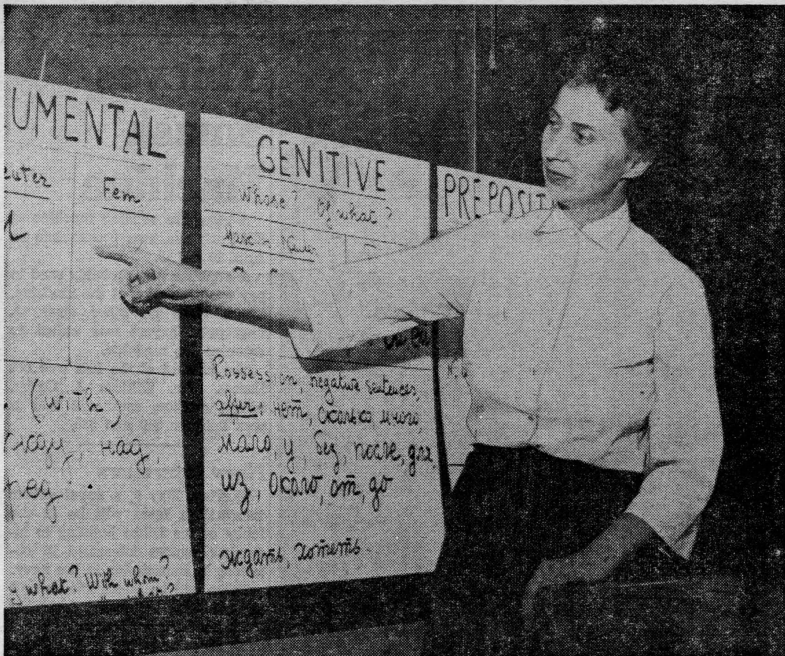 UMENTAL
euter
Fem
(with)
над,
ред
y what? With whom?
GENITIVE
Whose? Of what?
Masc Neuter
Possession, negative sentences,
after: нет, сколько, много,
мало, у, без, после, для,
из, около, от, до
ждать, хотеть
PREPOSIT